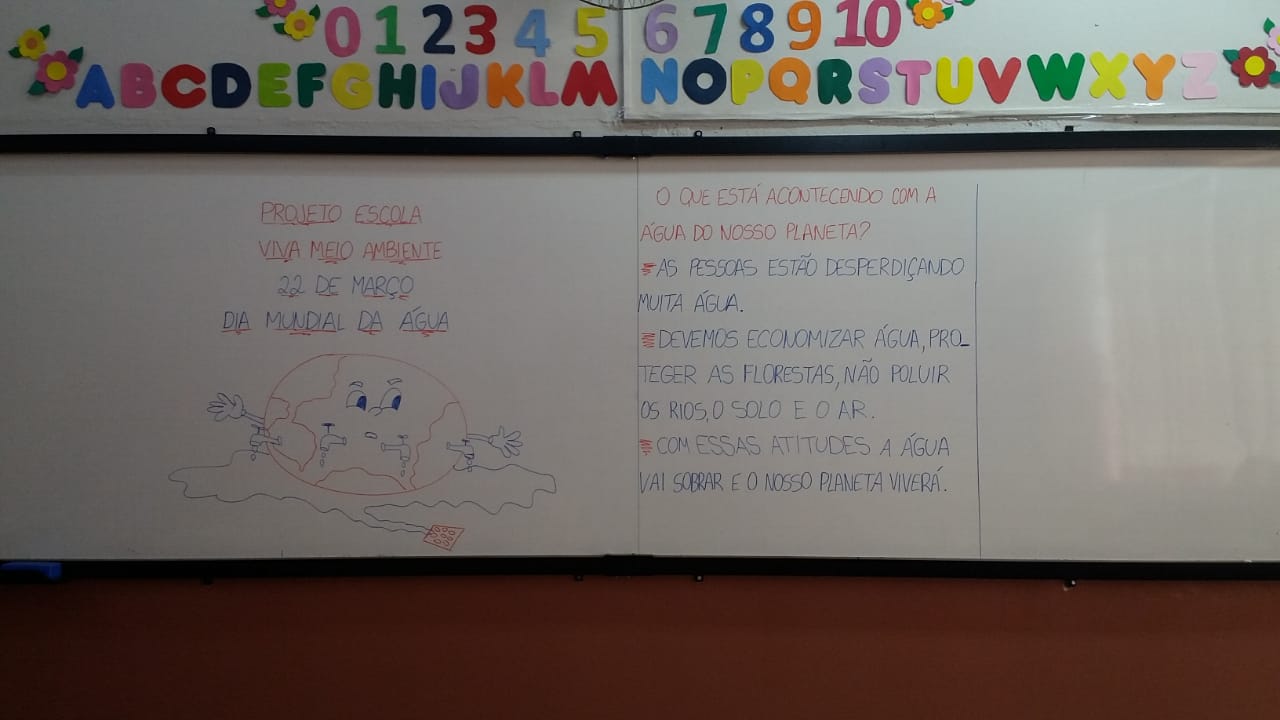 0 1 2 3 4 5 6 7 8 9 10
ABCDEFGHIJKLMNOPQRSTUVWXYZ
PROJETO ESCOLA
VIVA MEIO AMBIENTE
22 DE MARÇO
DIA MUNDIAL DA ÁGUA
O QUE ESTÁ ACONTECENDO COM A
ÁGUA DO NOSSO PLANETA?
AS PESSOAS ESTÃO DESPERDIÇANDO
MUITA ÁGUA.
DEVEMOS ECONOMIZAR ÁGUA, PRO_
TEGER AS FLORESTAS, NÃO POLUIR
OS RIOS, O SOLO E O AR.
COM ESSAS ATITUDES A ÁGUA
VAI SOBRAR E O NOSSO PLANETA VIVERÁ.